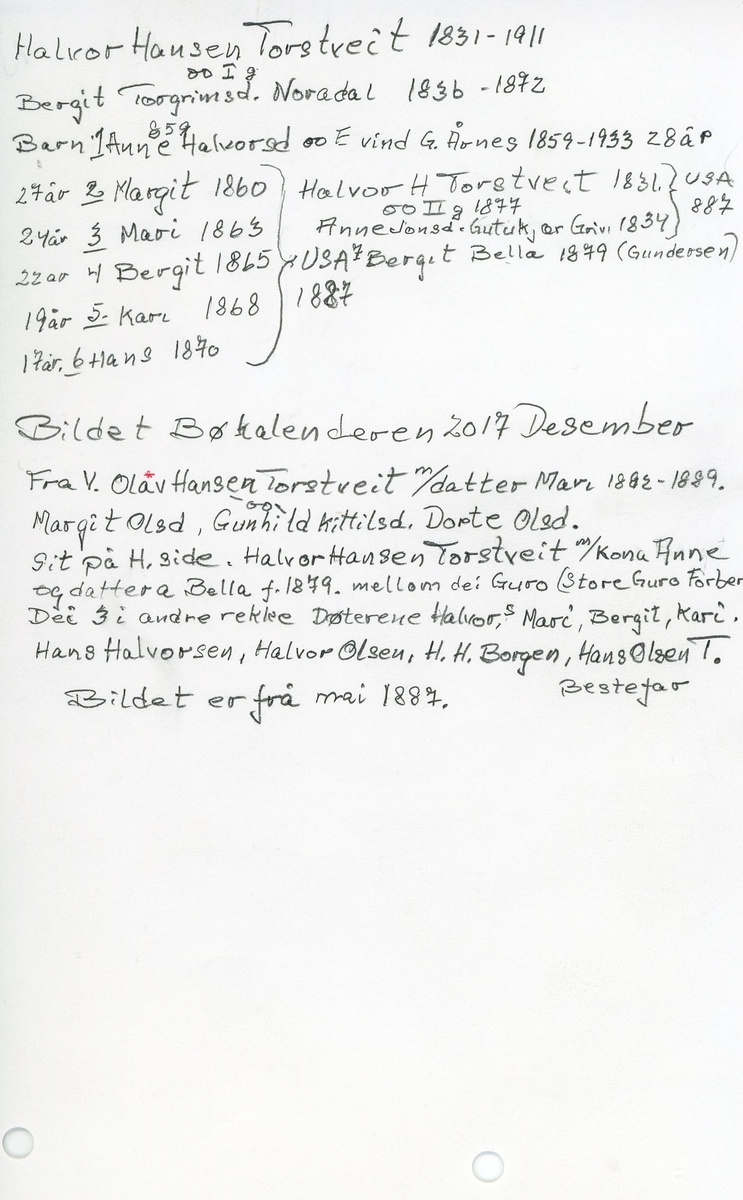 Halvor Hansen Torstveit 1831-1911
oo I g
Bergit Torgrimsd. Noradal 1836-1872
859
Barn 1 Anne Halvorsd oo E vind G. Årnes 1859-1933 28år
27år 2 Margit 1860
24år 3 Mari 1863
22ar 4 Bergit 1865
19år 5 Kari 1868
17år. 6 Hans 1870
Halvor H Torstveit 1831. USA
oo II g 1877 887
Anne Jonsd. Griv. 1834
USA 7 Bergit Bella 1879 (Gundersen)
1887
Bildet Bøkalenderen 2017 Desember
Fra V. Olav Hansen Torstveit m/datter Mari 1882-1889.
og
Margit Olsd, Gunhild Kittilsd. Dorte Olsd.
Sit på H. side. Halvor Hansen Torstveit m/Kona Anne
og dattera Bella f. 1879. mellom dei Guro (Store Guro Forber
Dei 3 i andre rekke Døterene Halvor,s Mari, Bergit, Kari.
Hans Halvorsen, Halvor Olsen, H. H. Borgen, Hans Olsen T.
Bestefar
Bildet er frå mai 1887.